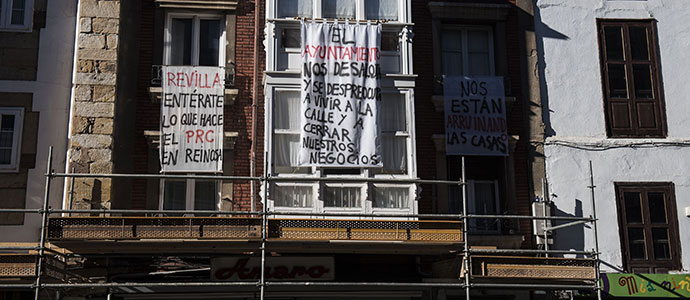 REVILLA
ENTÉRATE
LO QUE HACE
EL PRC
EN REINOSA
EL
AYUNTAMIENTO
NOS DESALOJA
Y SE DESPREOCUPA
A VIVIR A LA
CALLE Y A
CERRAR
NUESTROS
NEGOCIOS
NOS
ESTÁN
ARRUINANDO
LAS CASAS
Amaro